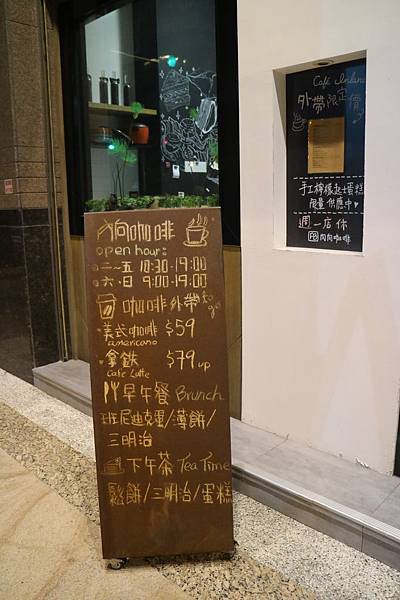 內向咖啡
open hour:
二~五 10:30-19:00
六、日 9:00-19:00
咖啡外帶 to go
美式咖啡 $59
americano
拿鐵 $79 up
Cafe Latte
早午餐 Brunch
班尼迪克蛋/薄餅/
三明治
下午茶 Tea Time
鬆餅/三明治/蛋糕
Café Inland
外帶限定價
手工檸檬起士蛋糕
限量供應中
週一店休
內向咖啡